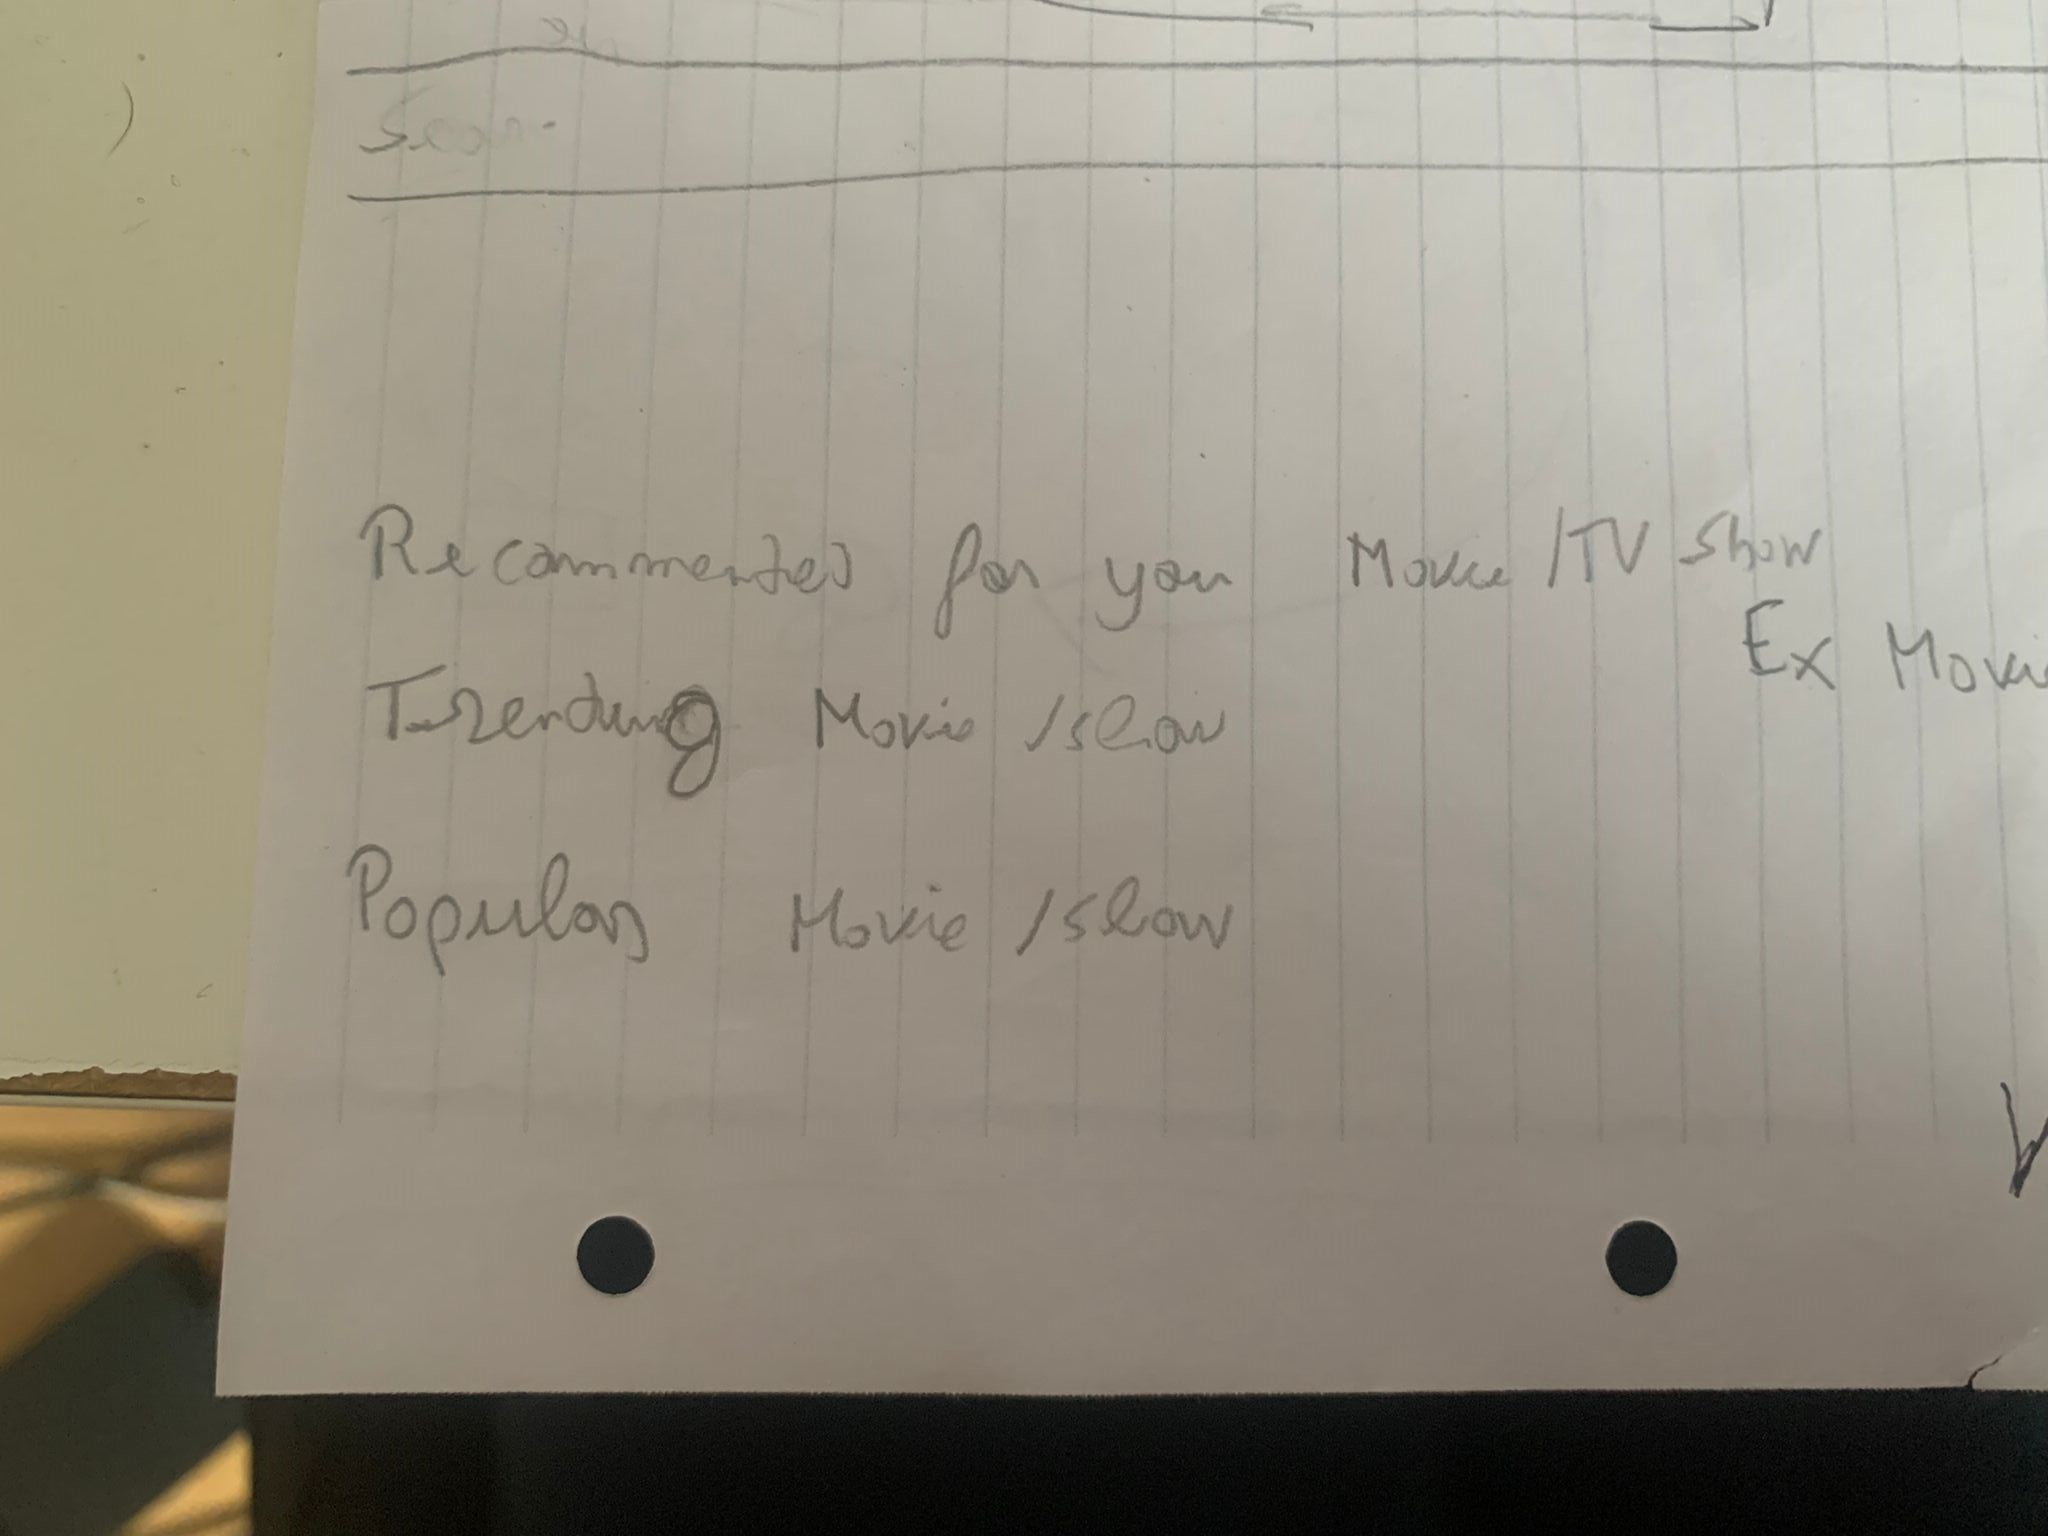 Recommended for you Movie /TV Show
Ex Movie
Trending Movie /show
Popular Movie /show